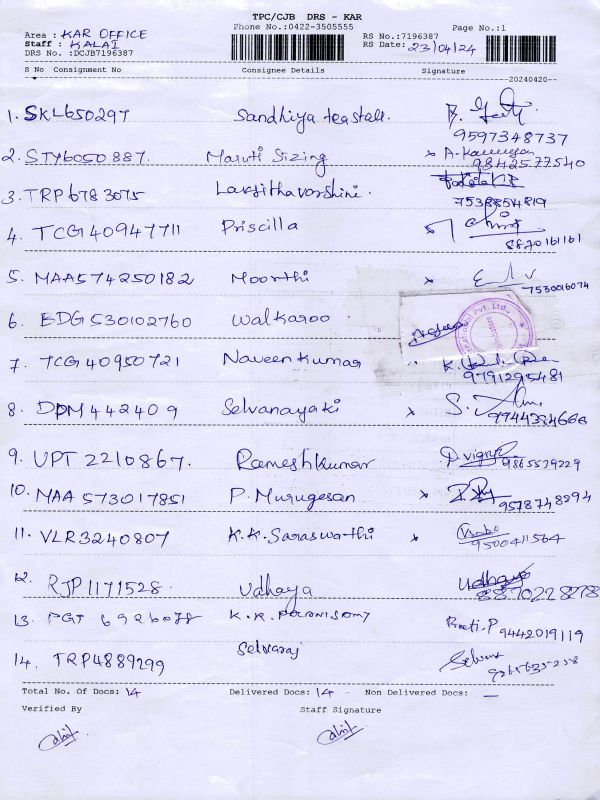 TPC/CJB DRS - KAR
Phone No.:0422-3505555
Page No.:1
Area : KAR OFFICE
RS No.:7196387
Staff : KALAI
RS Date: 23/04/24
DRS No. :DCJB7196387
S No Consignment No Consignee Details Signature
20240420
1. SKL650297 Sandhiya teastall.
9597348737
2. STY6050887. Maruti Sizing
9842577540
3. TRP6783075 Laksithavarshini.
7538854819
4. TCG40947711 Priscilla
8870161161
5. MAA574250182 Moorthi
7530016074
6. EDG530102760 Walkaroo
Pvt. Ltd.
7. TCG40950721 Naveenkumar
9791295481
8. DPM442409 Selvanayaki
9944384666
9. UPT2210867. Rameshkumar
9865579229
10. MAA573017851 P. Murugesan
9578748894
11. VLR3240807 K.A. Saraswathi
9500411564
12. RJP1171528. Udhaya Udhaya
8870228878
13. PGT 6926078 K.R. Palanisamy
9442019119
14. TRP4889299 Selvaraj
Total No. Of Docs: 14 Delivered Docs: 14 - Non Delivered Docs: —
Verified By Staff Signature